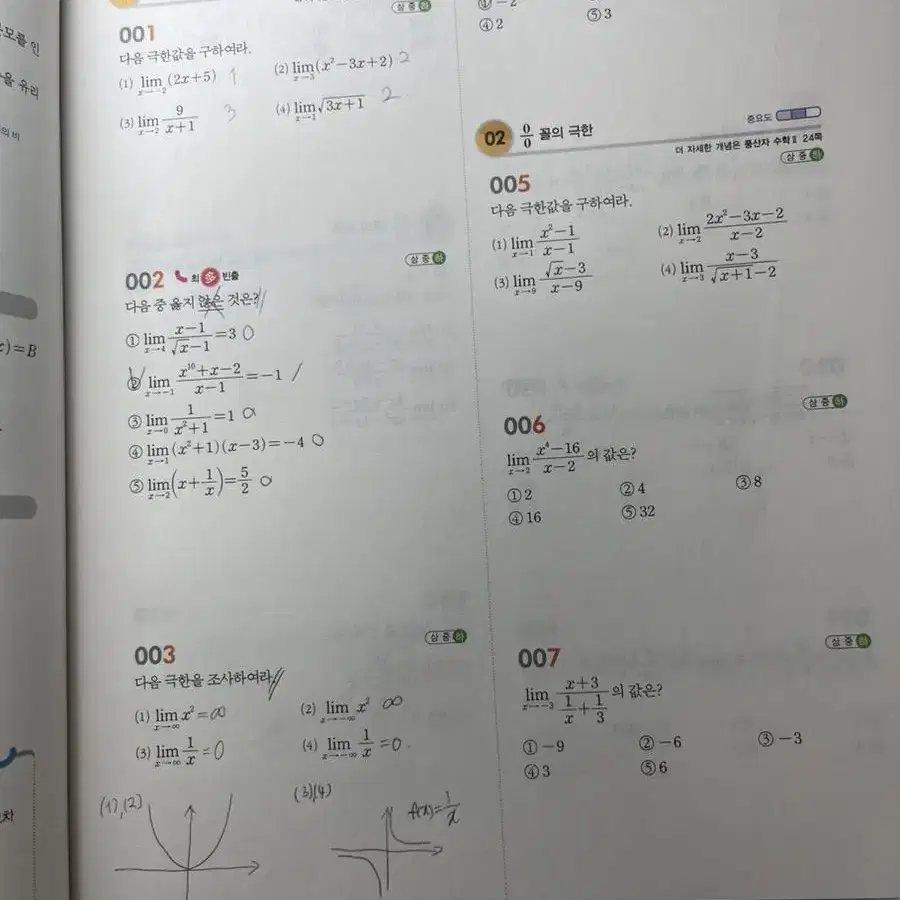 모를 인
을 유리
의 비
x)=B
차
상 중 하
001
다음 극한값을 구하여라.
(1) lim x→-2 (2x+5) 1
(2) lim x→3 (x²-3x+2) 2
(3) lim x→2 9/(x+1) 3
(4) lim x→1 √(3x+1) 2
상 중 하
002 최 多 빈출
다음 중 옳지 않은 것은?
① lim x→4 (x-1)/(√x-1)=3 O
② lim x→-1 (x¹⁰+x-2)/(x-1)=-1 /
③ lim x→0 1/(x²+1)=1 O
④ lim x→1 (x²+1)(x-3)=-4 O
⑤ lim x→2 (x+1/x)=5/2 O
상 중 하
003
다음 극한을 조사하여라.
(1) lim x→∞ x² =∞
(2) lim x→-∞ x² ∞
(3) lim x→∞ 1/x =0
(4) lim x→-∞ 1/x =0.
(1),(2)
(3)(4)
f(x)=1/x
① -2
④ 2 ⑤ 3
중요도
02 0/0 꼴의 극한
더 자세한 개념은 풍산자 수학Ⅱ 24쪽
상 중 하
005
다음 극한값을 구하여라.
(1) lim x→1 (x²-1)/(x-1)
(2) lim x→2 (2x²-3x-2)/(x-2)
(3) lim x→9 (√x-3)/(x-9)
(4) lim x→3 (x-3)/(√(x+1)-2)
상 중 하
006
lim x→2 (x⁴-16)/(x-2) 의 값은?
① 2 ② 4 ③ 8
④ 16 ⑤ 32
상 중 하
007
lim x→-3 (x+3)/(1/x+1/3) 의 값은?
① -9 ② -6 ③ -3
④ 3 ⑤ 6